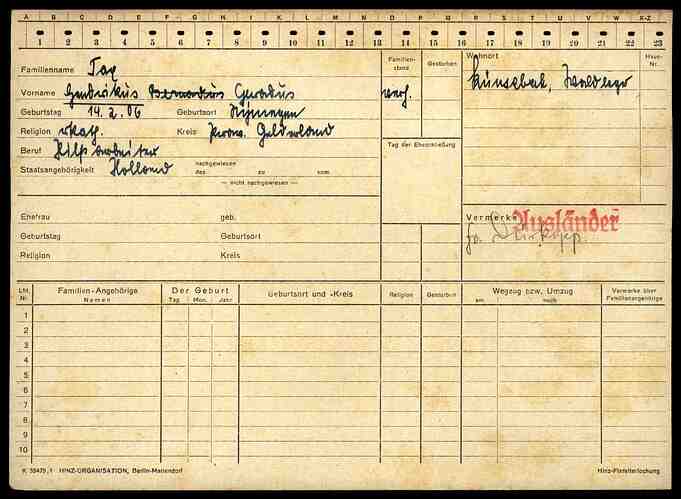 A B C D E F G H I J K L M N O P Q R S T U V W X-Z
1 2 3 4 5 6 7 8 9 10 11 12 13 14 15 16 17 18 19 20 21 22 23
Familienname Tax Familien-stand Gestorben Wohnort Haus-Nr.
Vorname Hendrikus Bernardus Gerardus verh. Künsebek, Waldlager
Geburtstag 14.2.06 Geburtsort Nijmegen
Religion rkath. Kreis Prov. Gelderland
Beruf Hilfsarbeiter Tag der Eheschließung
Staatsangehörigkeit Holland nachgewiesen
des zu vom
— nicht nachgewiesen —
Ehefrau geb. Vermerke Ausländer
Geburtstag Geburtsort Fa. Dürkopp.
Religion Kreis
Lfd. Nr. Familien-Angehörige Der Geburt Geburtsort und -Kreis Religion Gestorben Wegzug bzw. Umzug Vermerke über Familienangehörige
Namen Tag Mon. Jahr am nach
1
2
3
4
5
6
7
8
9
10
K 35475,1 HINZ-ORGANISATION, Berlin-Mariendorf Hinz-Pfeilerlochung